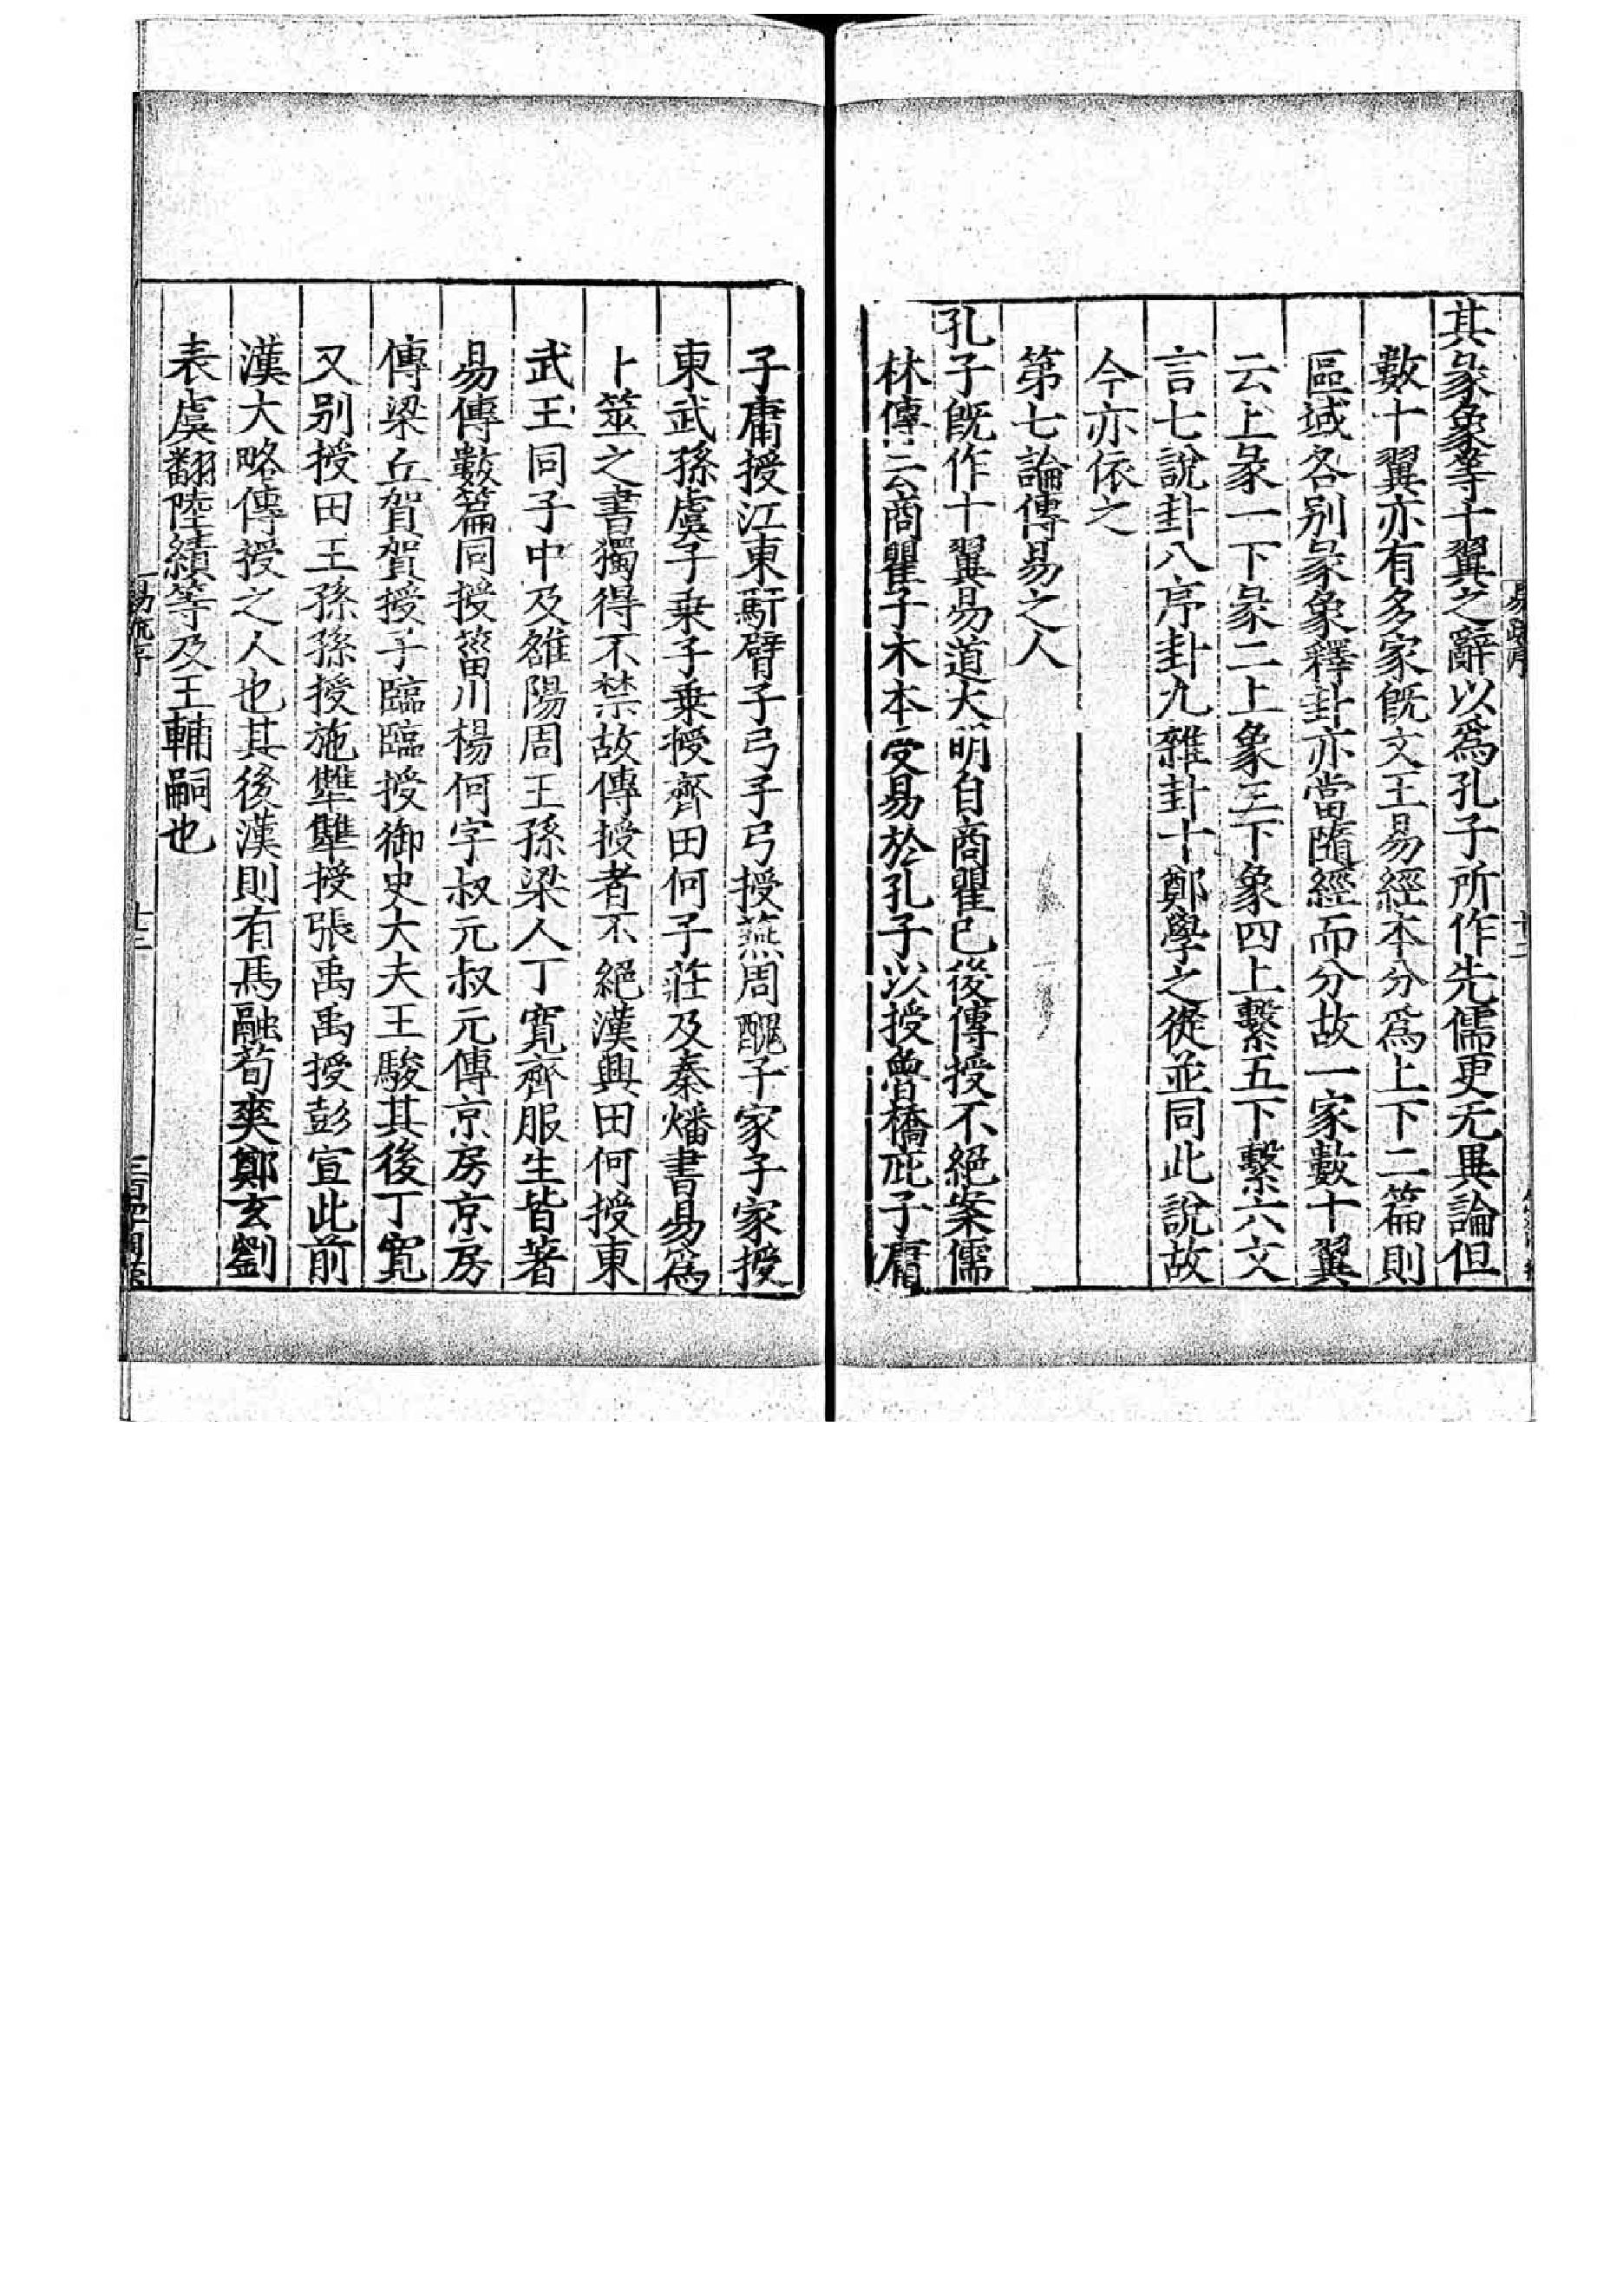 其彖象等十翼之辭以爲孔子所作先儒更无異論但
數十翼亦有多家旣文王易經本分爲上下二篇則
區域各别彖象釋卦亦當隨經而分故一家數十翼
云上彖一下彖二上象三下象四上繫五下繫六文
言七說卦八序卦九雜卦十鄭學之徒並同此說故
今亦依之
第七論傳易之人
孔子旣作十翼易道大明自商瞿已後傳授不絕案儒
林傳云商瞿子木本受易於孔子以授魯橋庇子庸
子庸授江東馯臂子弓子弓授燕周醜子家子家授
東武孫虞子乗子乗授齊田何子莊及秦燔書易爲
卜筮之書獨得不禁故傳授者不絕漢興田何授東
武王同子中及雒陽周王孫梁人丁寛齊服生皆著
易傳數篇同授菑川楊何字叔元叔元傳京房京房
傳梁丘賀賀授子臨臨授御史大夫王駿其後丁寛
又别授田王孫孫授施犨犨授張禹禹授彭宣此前
漢大略傳授之人也其後漢則有馬融荀爽鄭玄劉
表虞翻陸績等及王輔嗣也
易疏序